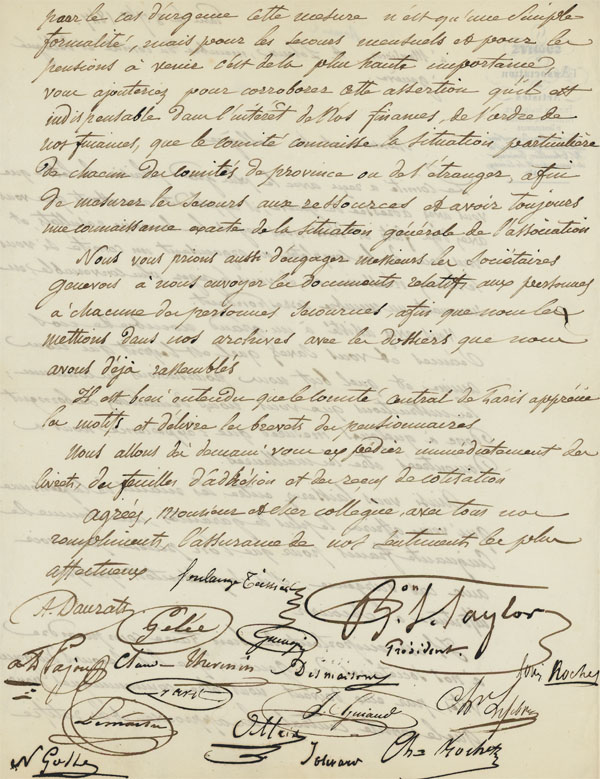 pour le cas d'urgence cette mesure n'est qu'une simple
formalité, mais pour les secours mensuels et pour les
pensions à venir c'est de la plus haute importance,
vous ajouteriez pour corroborer cette assertion qu'il est
indispensable dans l'intérêt de nos finances, de l'ordre de
nos finances, que le comité connaisse la situation particulière
de chacun des comités de province ou de l'étranger, afin
de mesurer les secours aux ressources et avoir toujours
une connaissance exacte de la situation générale de l'association
Nous vous prions aussi d'engager messieurs les Sociétaires
genevois à nous envoyer les documents relatifs aux personnes
à chacune des personnes secourues, afin que nous les
mettions dans nos archives avec les dossiers que nous
avons déjà rassemblés
Il est bien entendu que le Comité central de Paris apprécie
les motifs et délivre les brevets de pensionnaires
Nous allons dès demain vous expédier immédiatement des
livrets, des feuilles d'adhésion et des reçus de cotisation
agréez, Monsieur et cher collègue, avec tous nos
compliments, l'assurance de nos sentiments les plus
affectueux
Boulanger
A Dauzats
Gelée
Bon J. Taylor
Président.
Desmaisons
Rochet
Lemaitre
Allard
Che Rochet